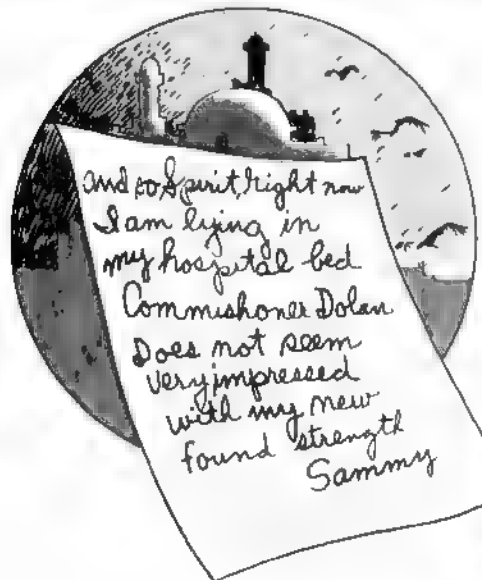 and so Spirit, right now
I am lying in
my hospital bed
Commishoner Dolan
Does not seem
very impressed
with my new
found strength
Sammy